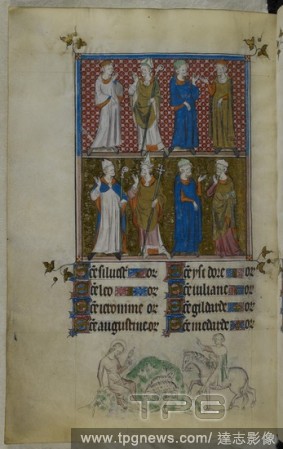 Sce silvest or
Sce leo or
Sce ieronime or
Sce augustine or
Sce ysidore or
Sce iuliane or
Sce gildarde or
Sce medarde or
TPG
www.tpgnews.com/達志影像